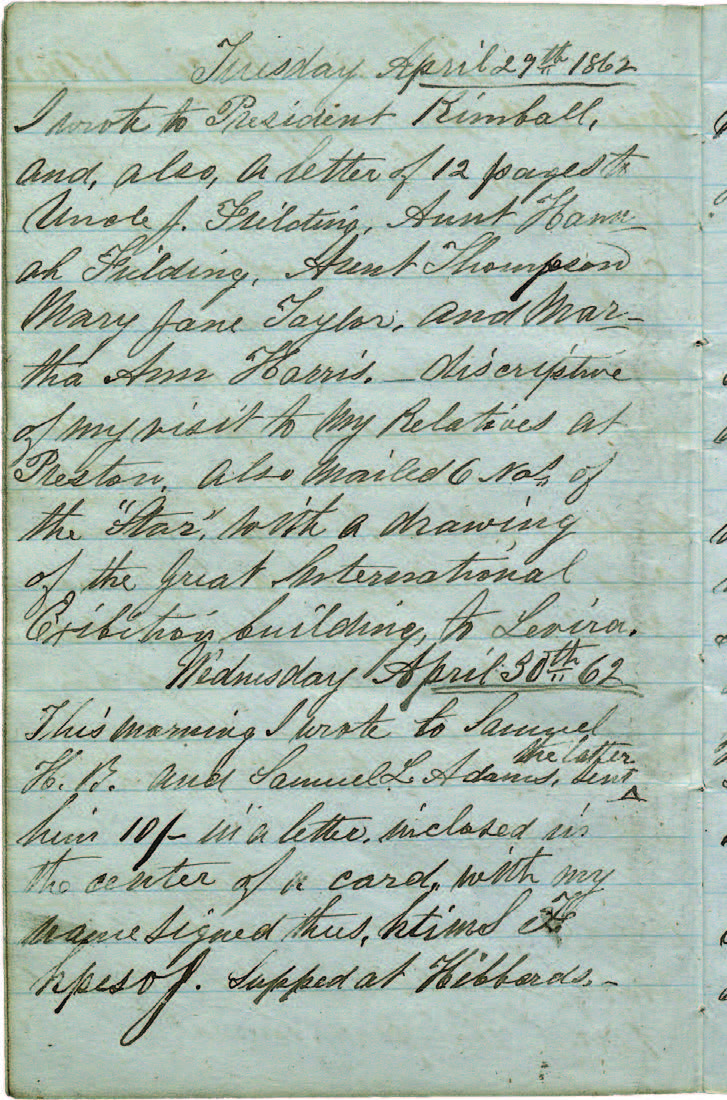 Tuesday April 29th 1862
I wrote to President Kimball,
and, also, a letter of 12 pages to
Uncle J. Fielding, Aunt Hann-
ah Fielding, Aunt Thompson
Mary Jane Taylor, and Mar-
tha Ann Harris. – discriptive
of my visit to my Relatives at
Preston, also mailed 6 Nos. of
the "Star", with a drawing
of the Great International
Exibition building, to Levira.
Wednesday April 30th 62
This morning I wrote to Samuel
the latter
H. B. and Samuel L. Adams, sent
him 10/- in a letter, inclosed in
the center of a card, with my
name signed thus, htims F
hpesoJ. Supped at Hibbards. –